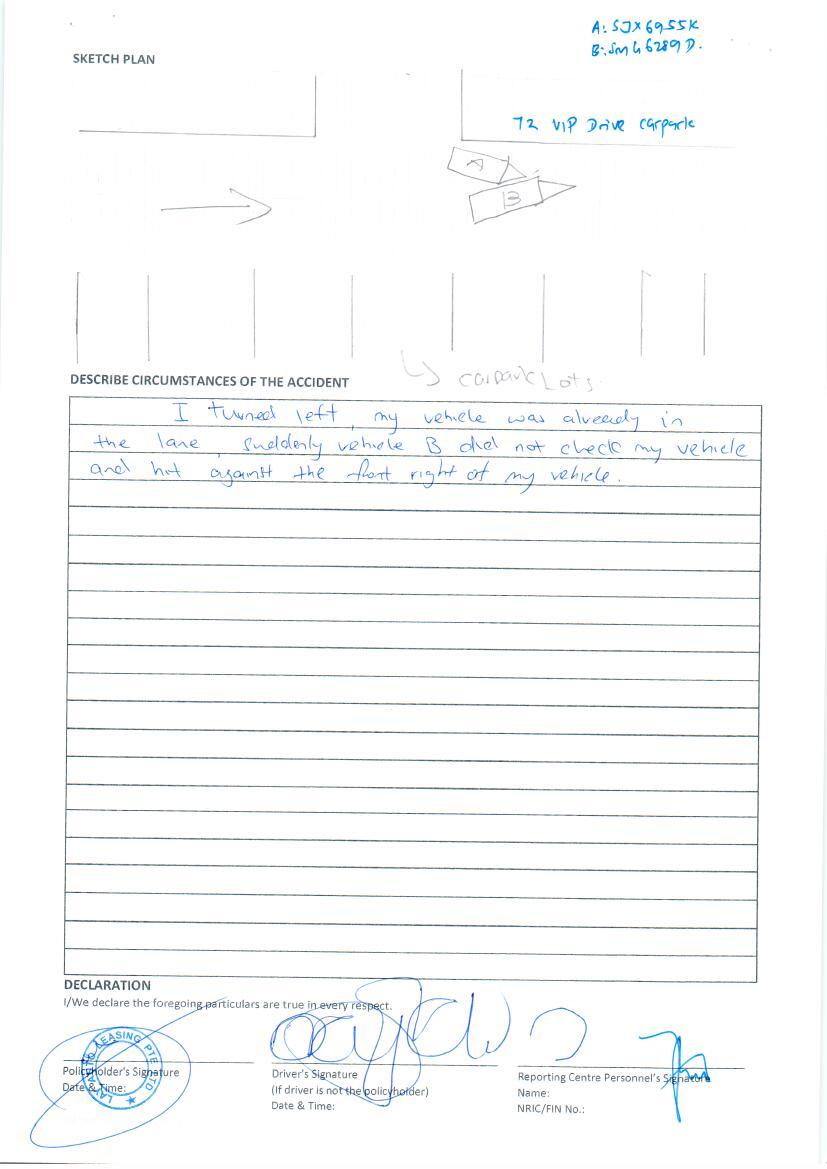 A: SJX6955K
B: SMG6289D.
SKETCH PLAN
72 VIP Drive carpark
A
B
carpark Lots.
DESCRIBE CIRCUMSTANCES OF THE ACCIDENT
I turned left, my vehicle was already in
the lane, suddenly vehicle B did not check my vehicle
and hit against the front right of my vehicle.
DECLARATION
I/We declare the foregoing particulars are true in every respect.
LEASING PTE LTD
Policyholder's Signature
Date & Time:
Driver's Signature
(If driver is not the policyholder)
Date & Time:
Reporting Centre Personnel's Signature
Name:
NRIC/FIN No.: